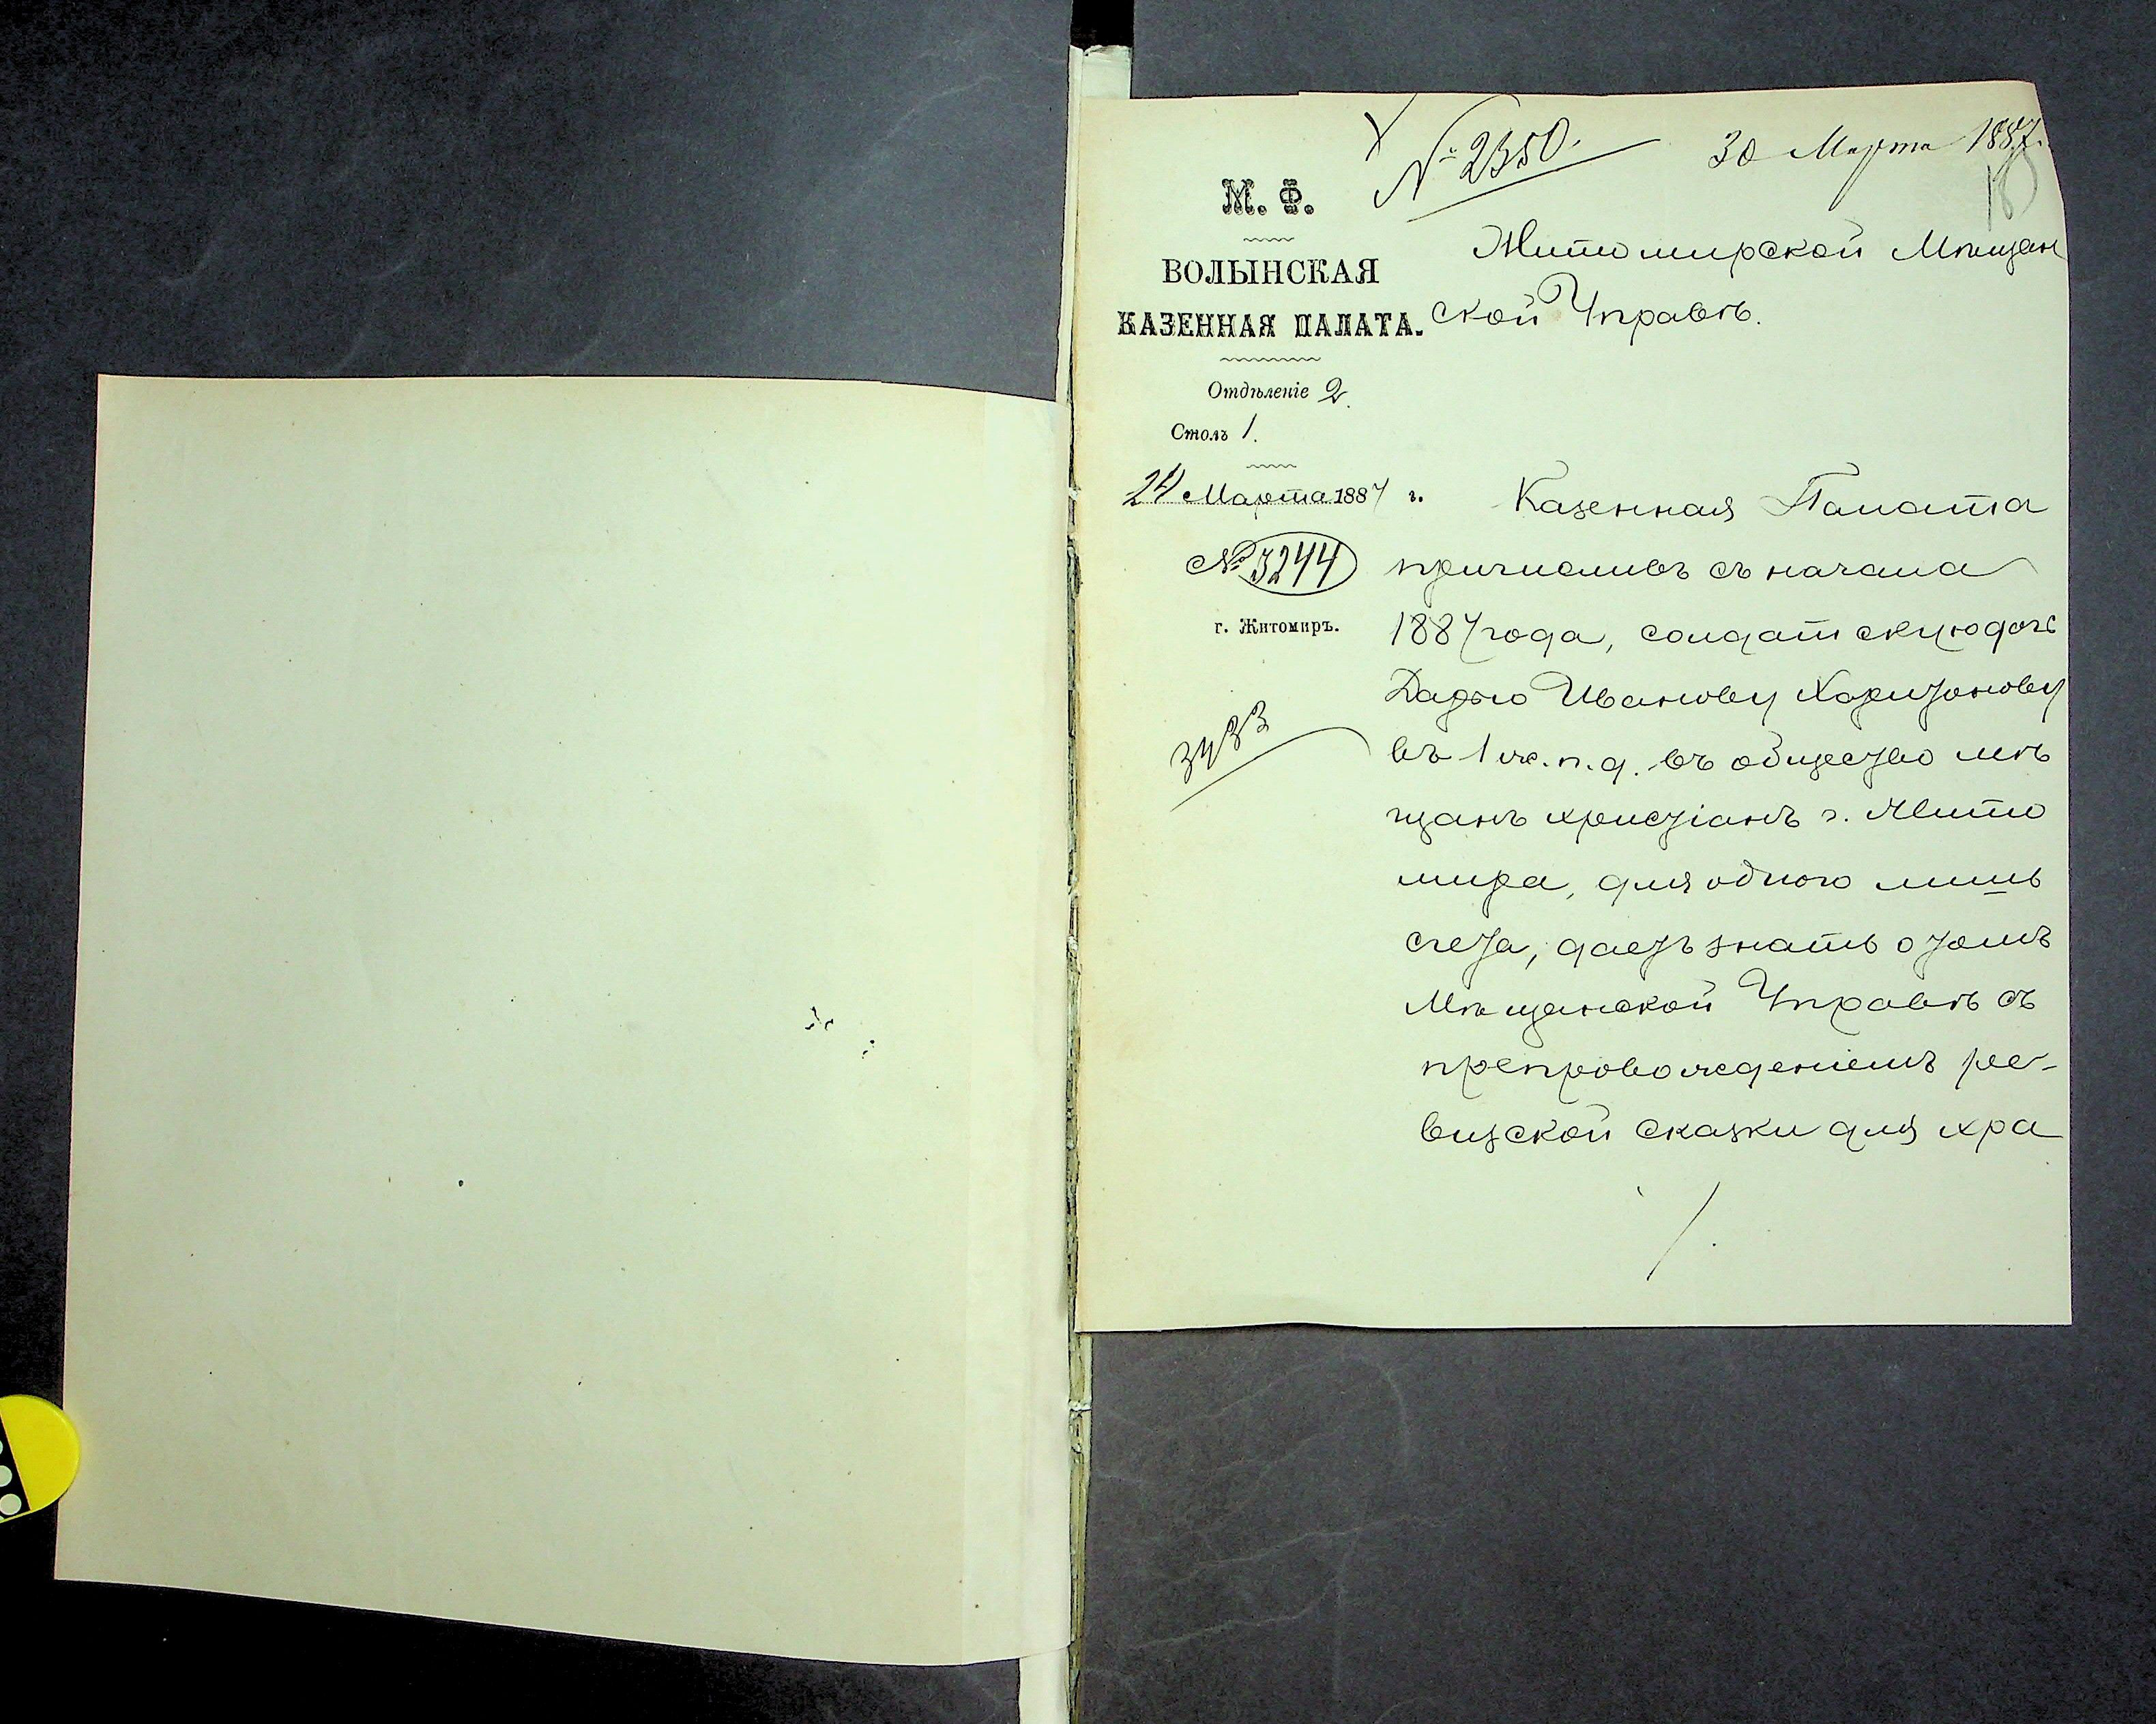 № 2350. 30 Марта 1887.
18
М. Ф.
ВОЛЫНСКАЯ
КАЗЕННАЯ ПАЛАТА.
Отдѣленіе 2.
Столъ 1.
24 Марта 1887 г.
№ 3244
г. Житомиръ.
Житомирской Мѣщан
ской Управѣ.
Казенная Палата
причисливъ съ начала
1887 года, солдатскую дочь
Дарью Иванову Харизонову
въ 1 ж. п. д. въ общество мѣ
щанъ христіанъ г. Жито
мира, для одного лишь
счета, даетъ знать о томъ
Мѣщанской Управѣ съ
препровожденіемъ ре-
визской сказки для хра